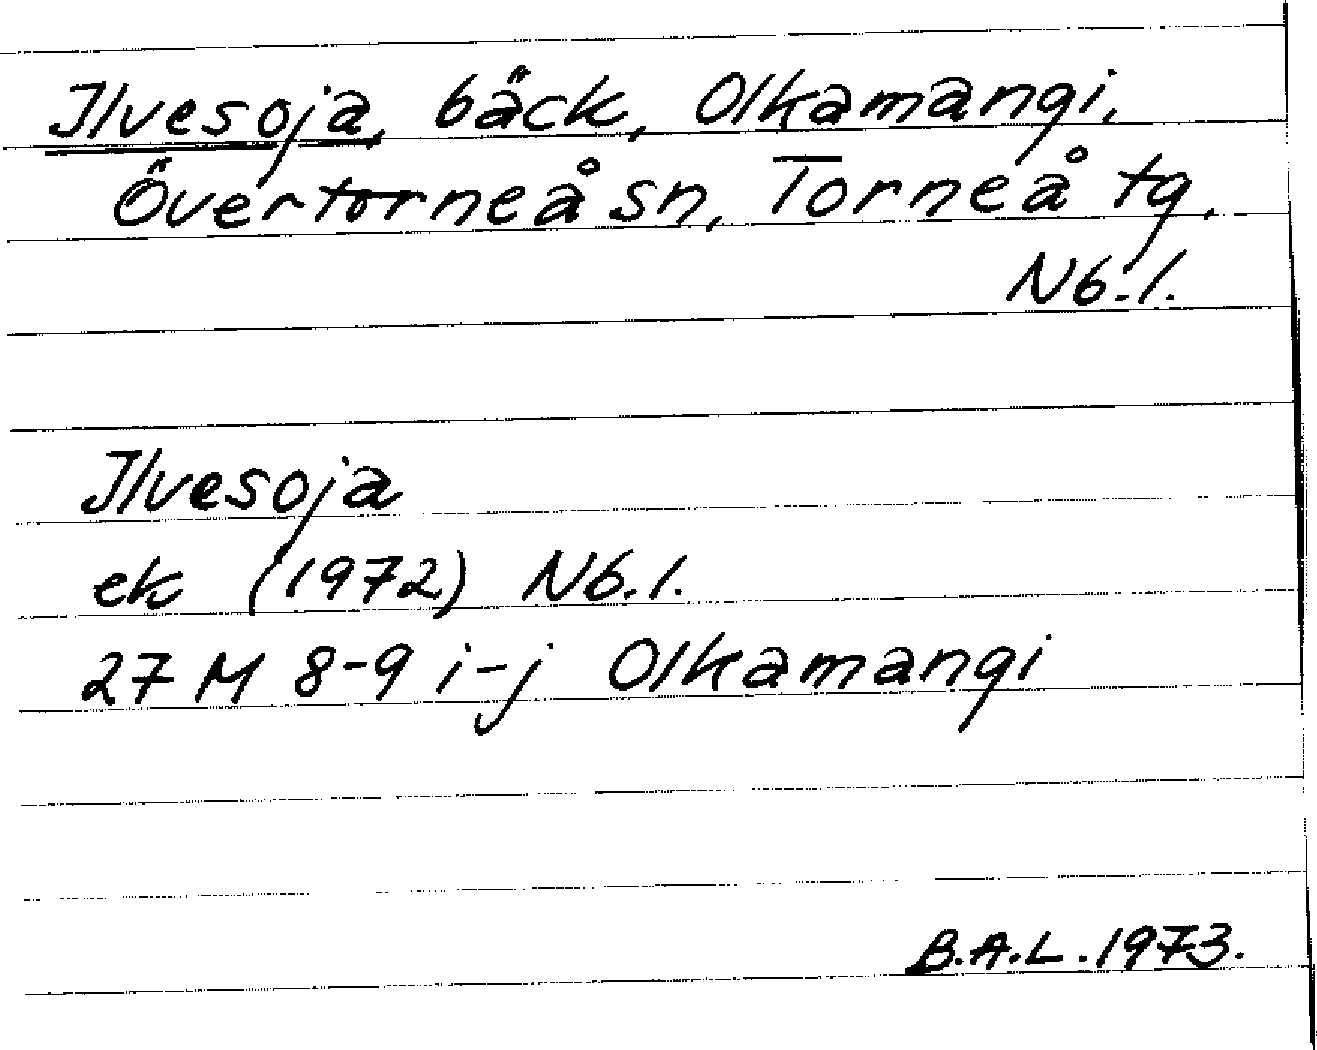 Ilvesoja, bäck, Olkamangi,
Övertorneå sn, Torneå tg,
Nb.l.
Ilvesoja
ek (1972) Nb.l.
27 M 8-9 i-j Olkamangi
B.A.L. 1973.